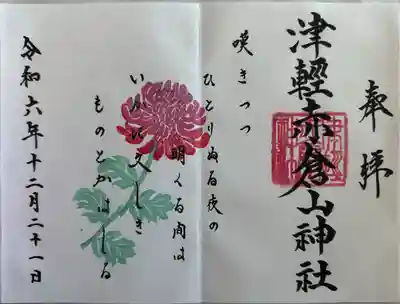 奉拝
津軽赤倉山神社
嘆きつつ
ひとりぬる夜の
明くる間は
いかに久しき
ものとかはしる
令和六年十二月二十一日